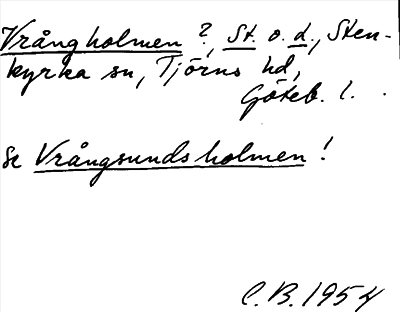 Vrångholmen ?, St. o. d., Sten-
kyrka sn, Tjörns hd,
Göteb. l.
Se Vrångsundsholmen !
C.B. 1954